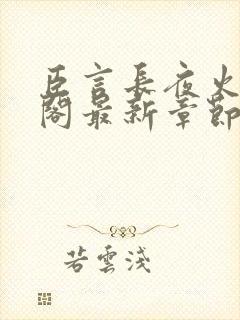 臣言長夜火
閣最新章節
若雲淺